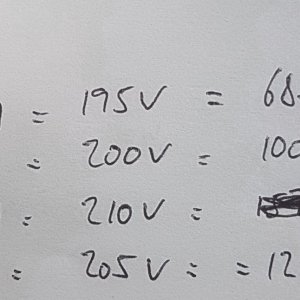 = 195V = 68
= 200V = 100
= 210V =
= 205V = = 12